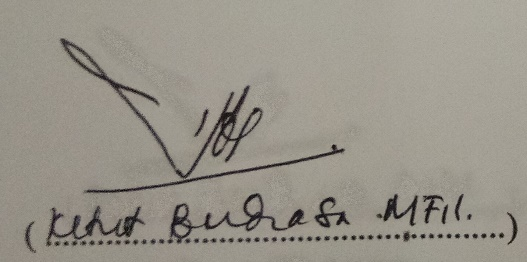 (Ketut Budrasa .MFil.)